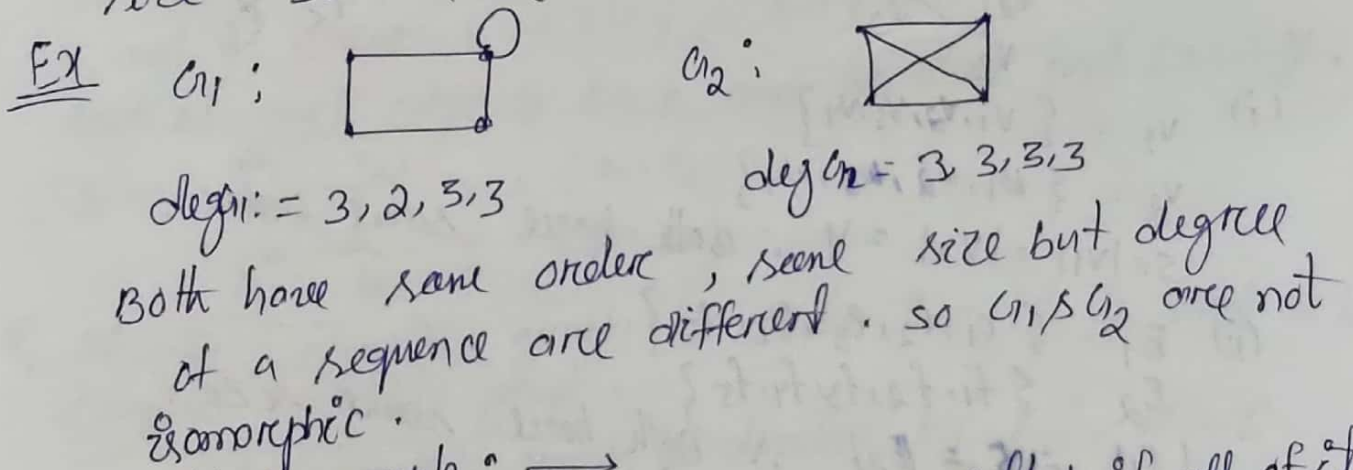 Ex G1 : G2 :
deg G1 : = 3, 2, 3, 3 deg G2 = 3, 3, 3, 3
Both have same order, same size but degree
of a sequence are different. so G1 & G2 are not
isomorphic.